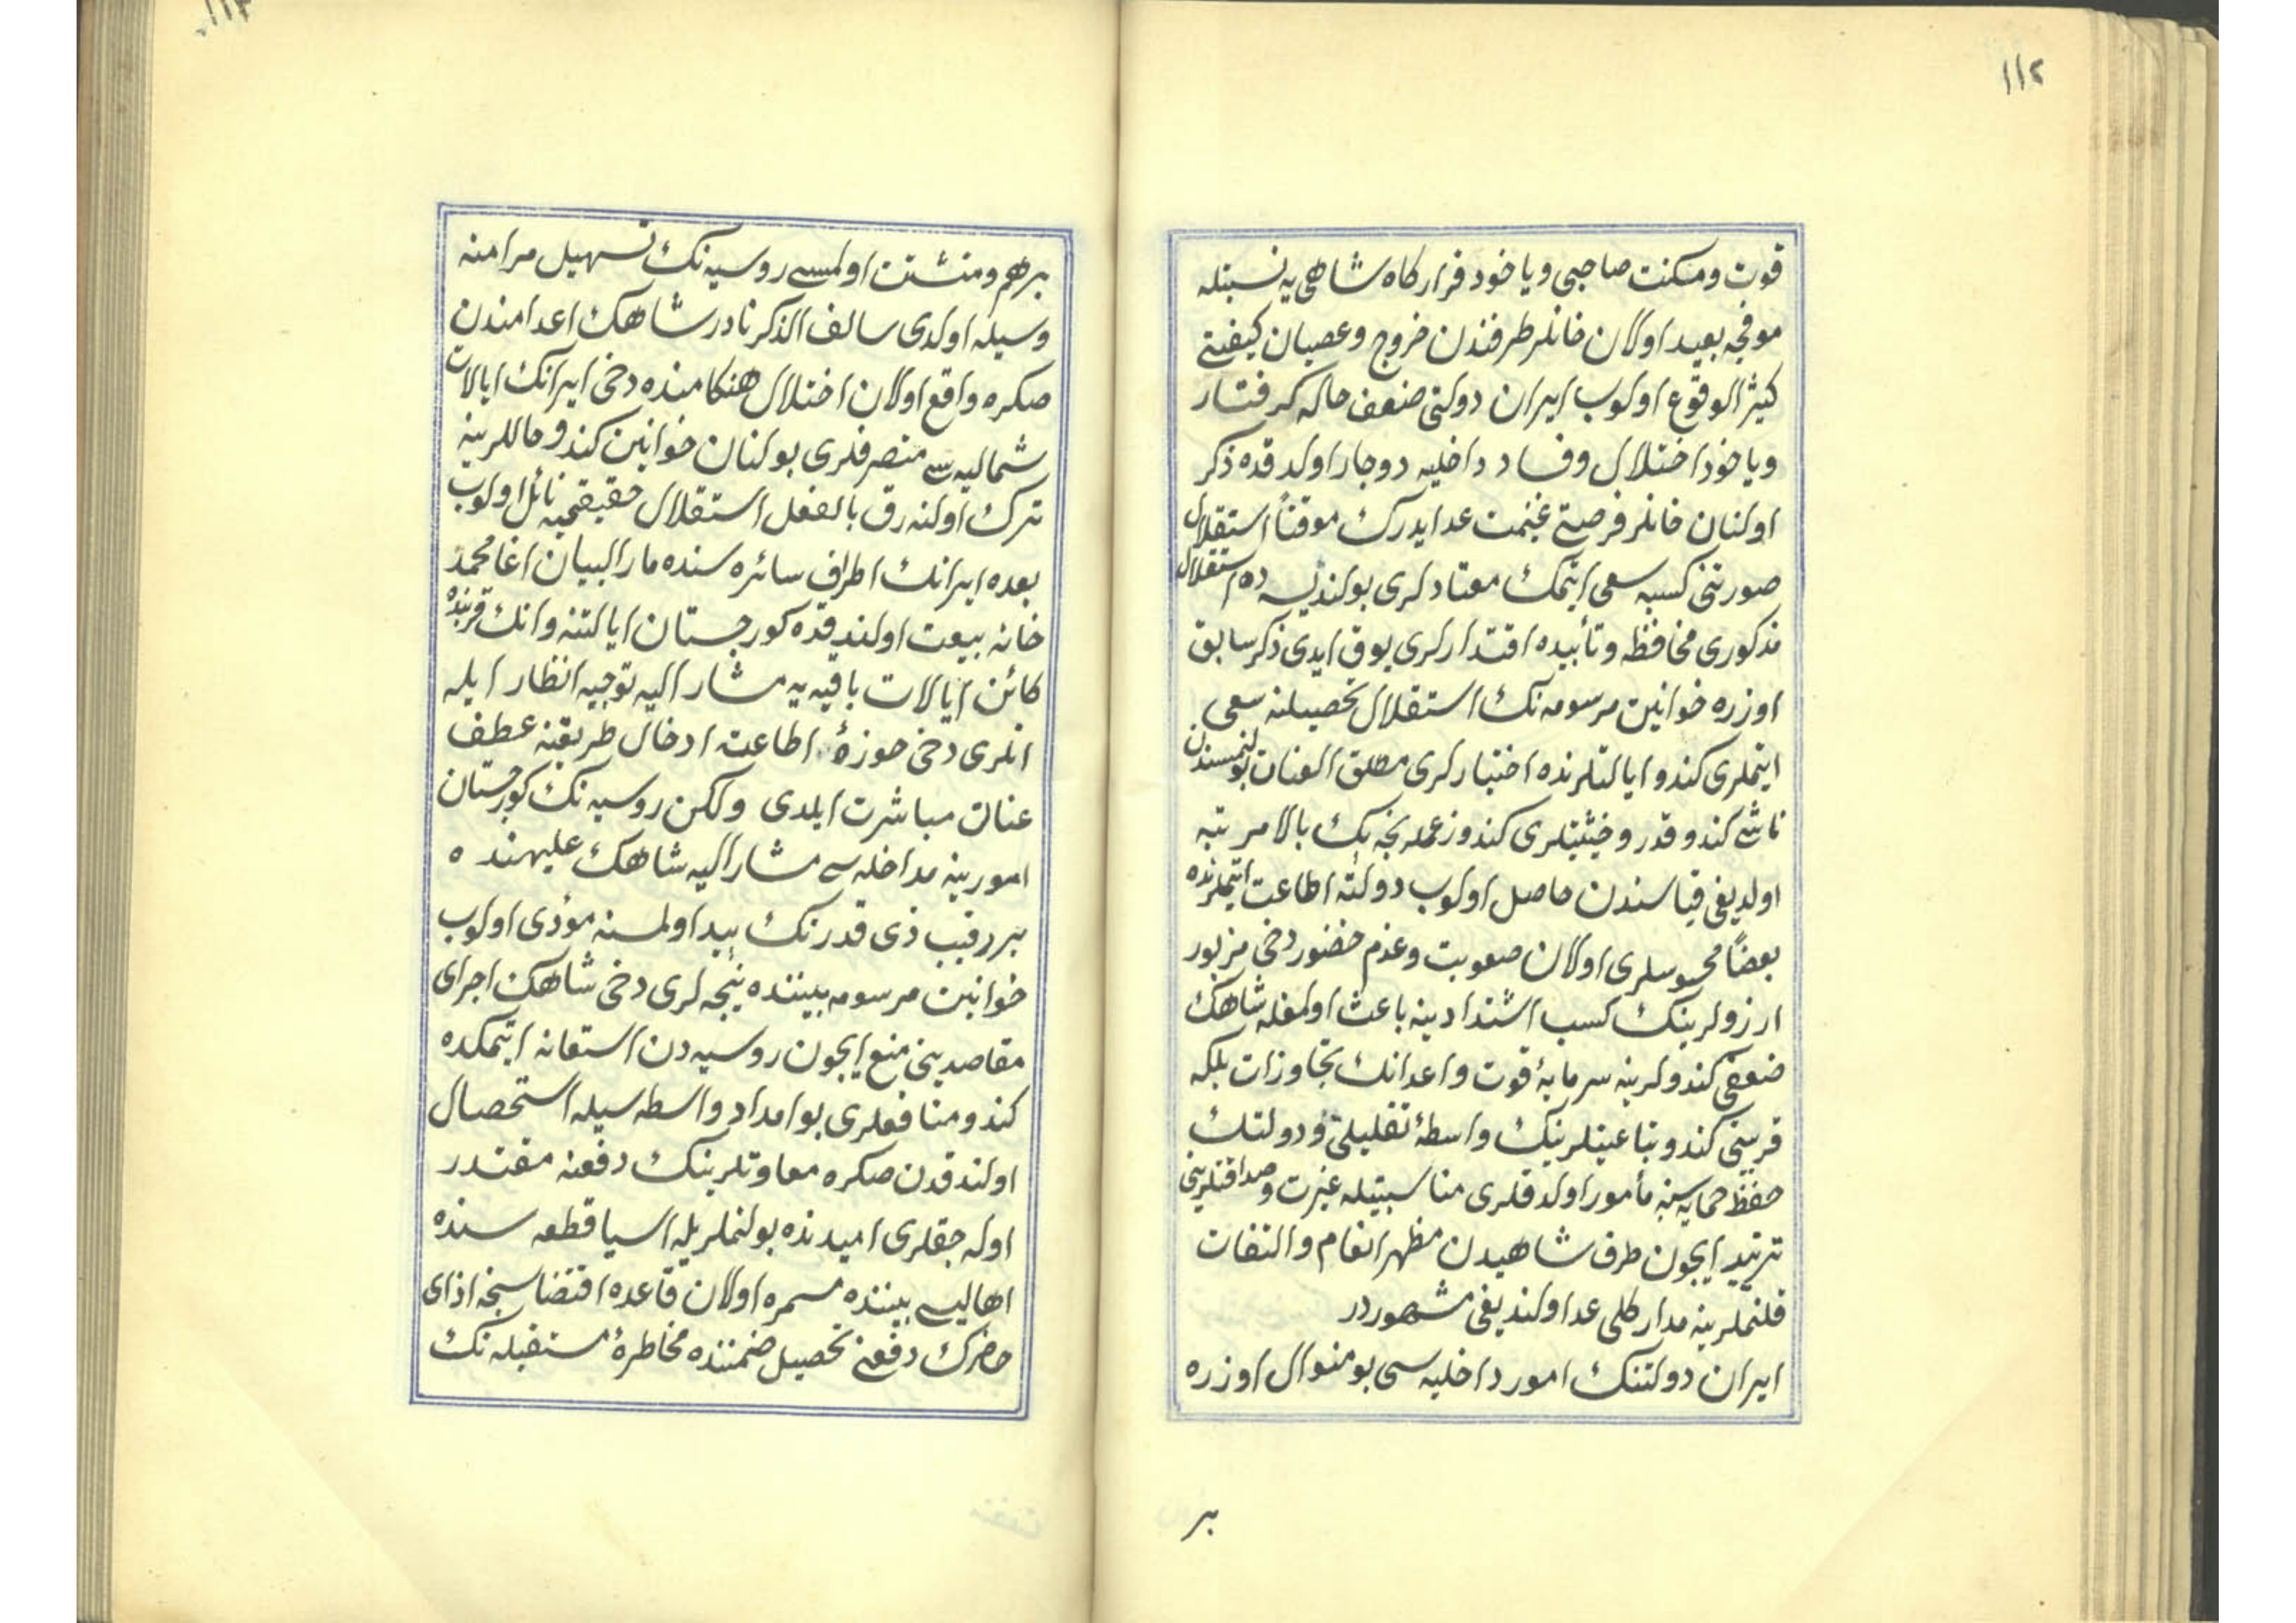 ١١٢
قوت ومكنت صاحبى وياخود قراركاه شاهى يه نسبتله
موقعجه بعيد اولان خانلر طرفندن خروج وعصيان كيفيتى
كثير الوقوع اولوب ايران دولتى ضعف حاله كرفتار
وياخود اختلال وفساد داخليه دوچار اولدقده ذكر
اولنان خانلر فرصتى غنيمت عد ايدرك موقتاً استقلال
صورتنى كسبه سعى ايتمك معتادلرى بولنديسه ده استقلال
مذكورى محافظه وتأبيده اقتدارلرى يوق ايدى ذكر سابق
اوزره خوانين مرسومه نك استقلال تحصيلنه سعى
ايتملرى كندو ايالتلرنده اختيارلرى مطلق العنان بولنمسندن
ناشى كندو قدر وحيثيتلرى كندو زعملرنجه پك بالا مرتبه
اولديغى قياسندن حاصل اولوب دولته اطاعت ايتملرنده
بعضاً محسوسلرى اولان صعوبت وعدم حضور دخى مزبور
ارزولرينك كسب اشتدادينه باعث اولمغله شاهك
ضعفى كندولرينه سرمايۀ قوت واعدانك تجاوزات بلكه
قربنى كندو تباعيتلرينك واسطۀ تقليلى ودولتك
حفظ حمايه سنه مأمور اولدقلرى مناسبتيله غيرت وصداقتلرينى
تزييد ايچون طرف شاهيدن مظهر انعام والتفات
قلنملرينه مدار كلى عد اولنديغى مشهوردر
ايران دولتنك امور داخليه سى بو منوال اوزره
بر
١١٣
برهم ومتشتت اولمسى روسيه نك تسهيل مرامنه
وسيله اولدى سالف الذكر نادر شاهك اعدامندن
صكره واقع اولان اختلال هنكامنده دخى ايرانك ايالات
شماليه سى متصرفلرى بولنان خوانين كندو حاللرينه
ترك اولنه رق بالفعل استقلال حقيقى يه نائل اولوب
بعده ايرانك اطراف سائره سنده مار البيان اغا محمد
خانه بيعت اولندقده كورجستان ايالتنه وانك قربنده
كائن ايالات باقيه يه مشار اليه توجيه انظار ايله
انلرى دخى حوزۀ اطاعته ادخال طريقنه عطف
عنان مباشرت ايلدى ولكن روسيه نك كورجستان
امورينه مداخله سى مشار اليه شاهك عليهنده
بر رقيب ذى قدرتك پيدا اولمسنه مؤدى اولوب
خوانين مرسومه بيننده نيجه لرى دخى شاهك اجراى
مقاصدينى منع ايچون روسيه دن استعانه ايتمكده
كندو منافعلرى بو امداد واسطه سيله استحصال
اولندقدن صكره معاونلرينك دفعنه مقتدر
اوله جقلرى اميدنده بولنملريله اسيا قطعه سنده
اهاليسى بيننده مسمره اولان قاعده اقتضاسنجه اذاى
حاضرك دفعنى تحصيل ضمننده مخاطرۀ مستقبله نك